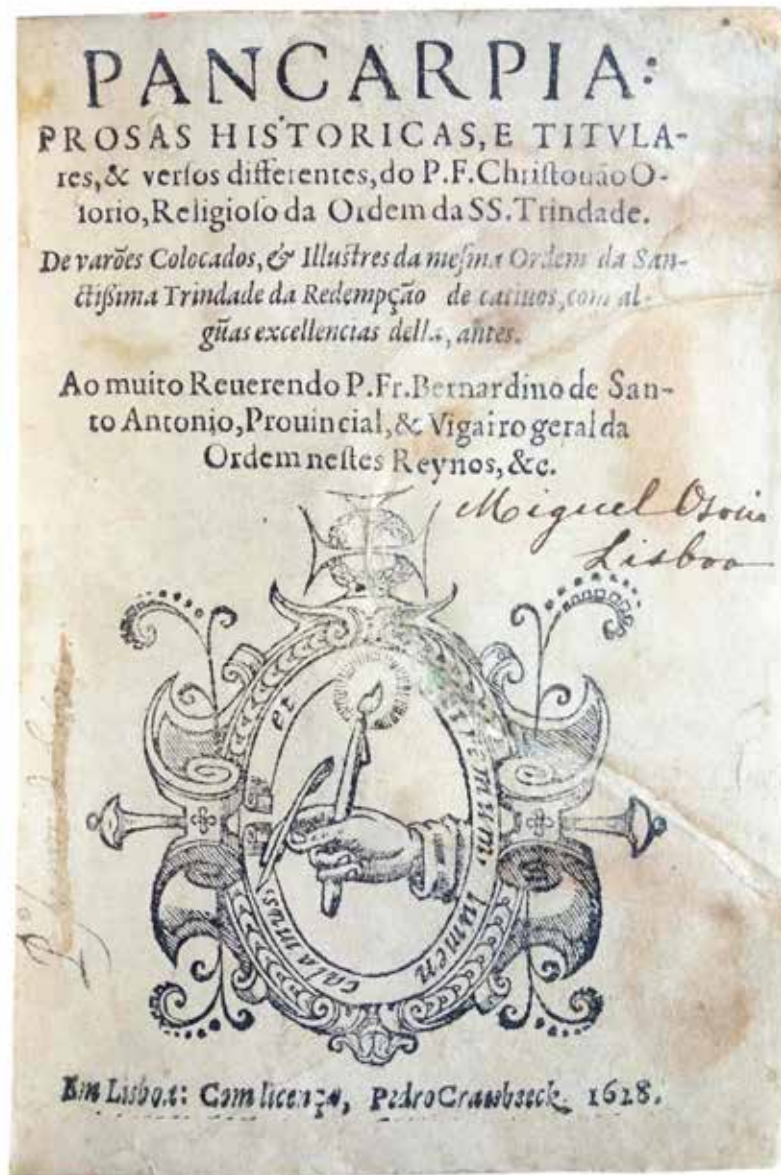 PANCARPIA:
PROSAS HISTORICAS, E TITVLA-
res, & verſos differentes, do P.F. Chriſtouão O-
ſorio, Religioſo da Ordem da SS. Trindade.
De varões Colocados, & Illuſtres da meſma Ordem da San-
ctiſsima Trindade da Redempção de catiuos, com al-
gũas excellencias della, antes.
Ao muito Reuerendo P.Fr. Bernardino de San-
to Antonio, Prouincial, & Vigairo geral da
Ordem neſtes Reynos, &c.
Miguel Osorio
Lisboa
et
lumen
calamus.
Em Lisboa: Com licença, Pedro Craesbeeck. 1628.